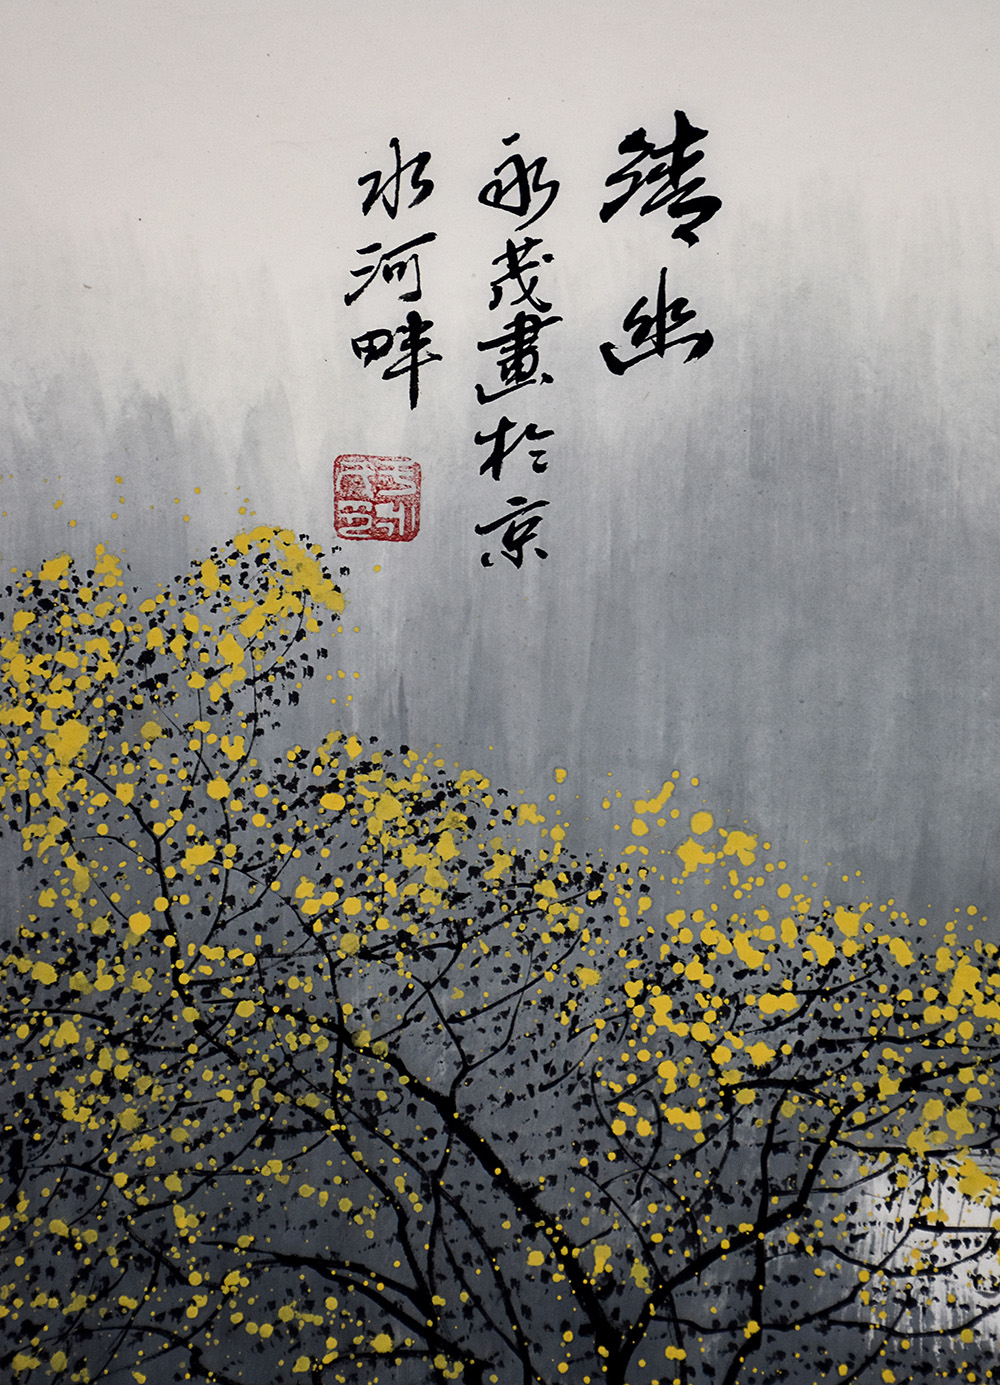 幽
永茂畫於京
水河畔